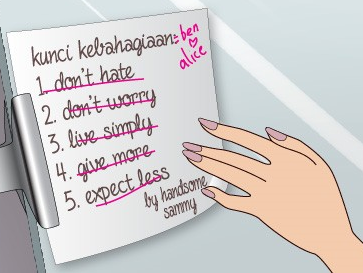 kunci kebahagiaan= ben
alice
1. don't hate
2. don't worry
3. live simply
4. give more
5. expect less
by handsome
sammy